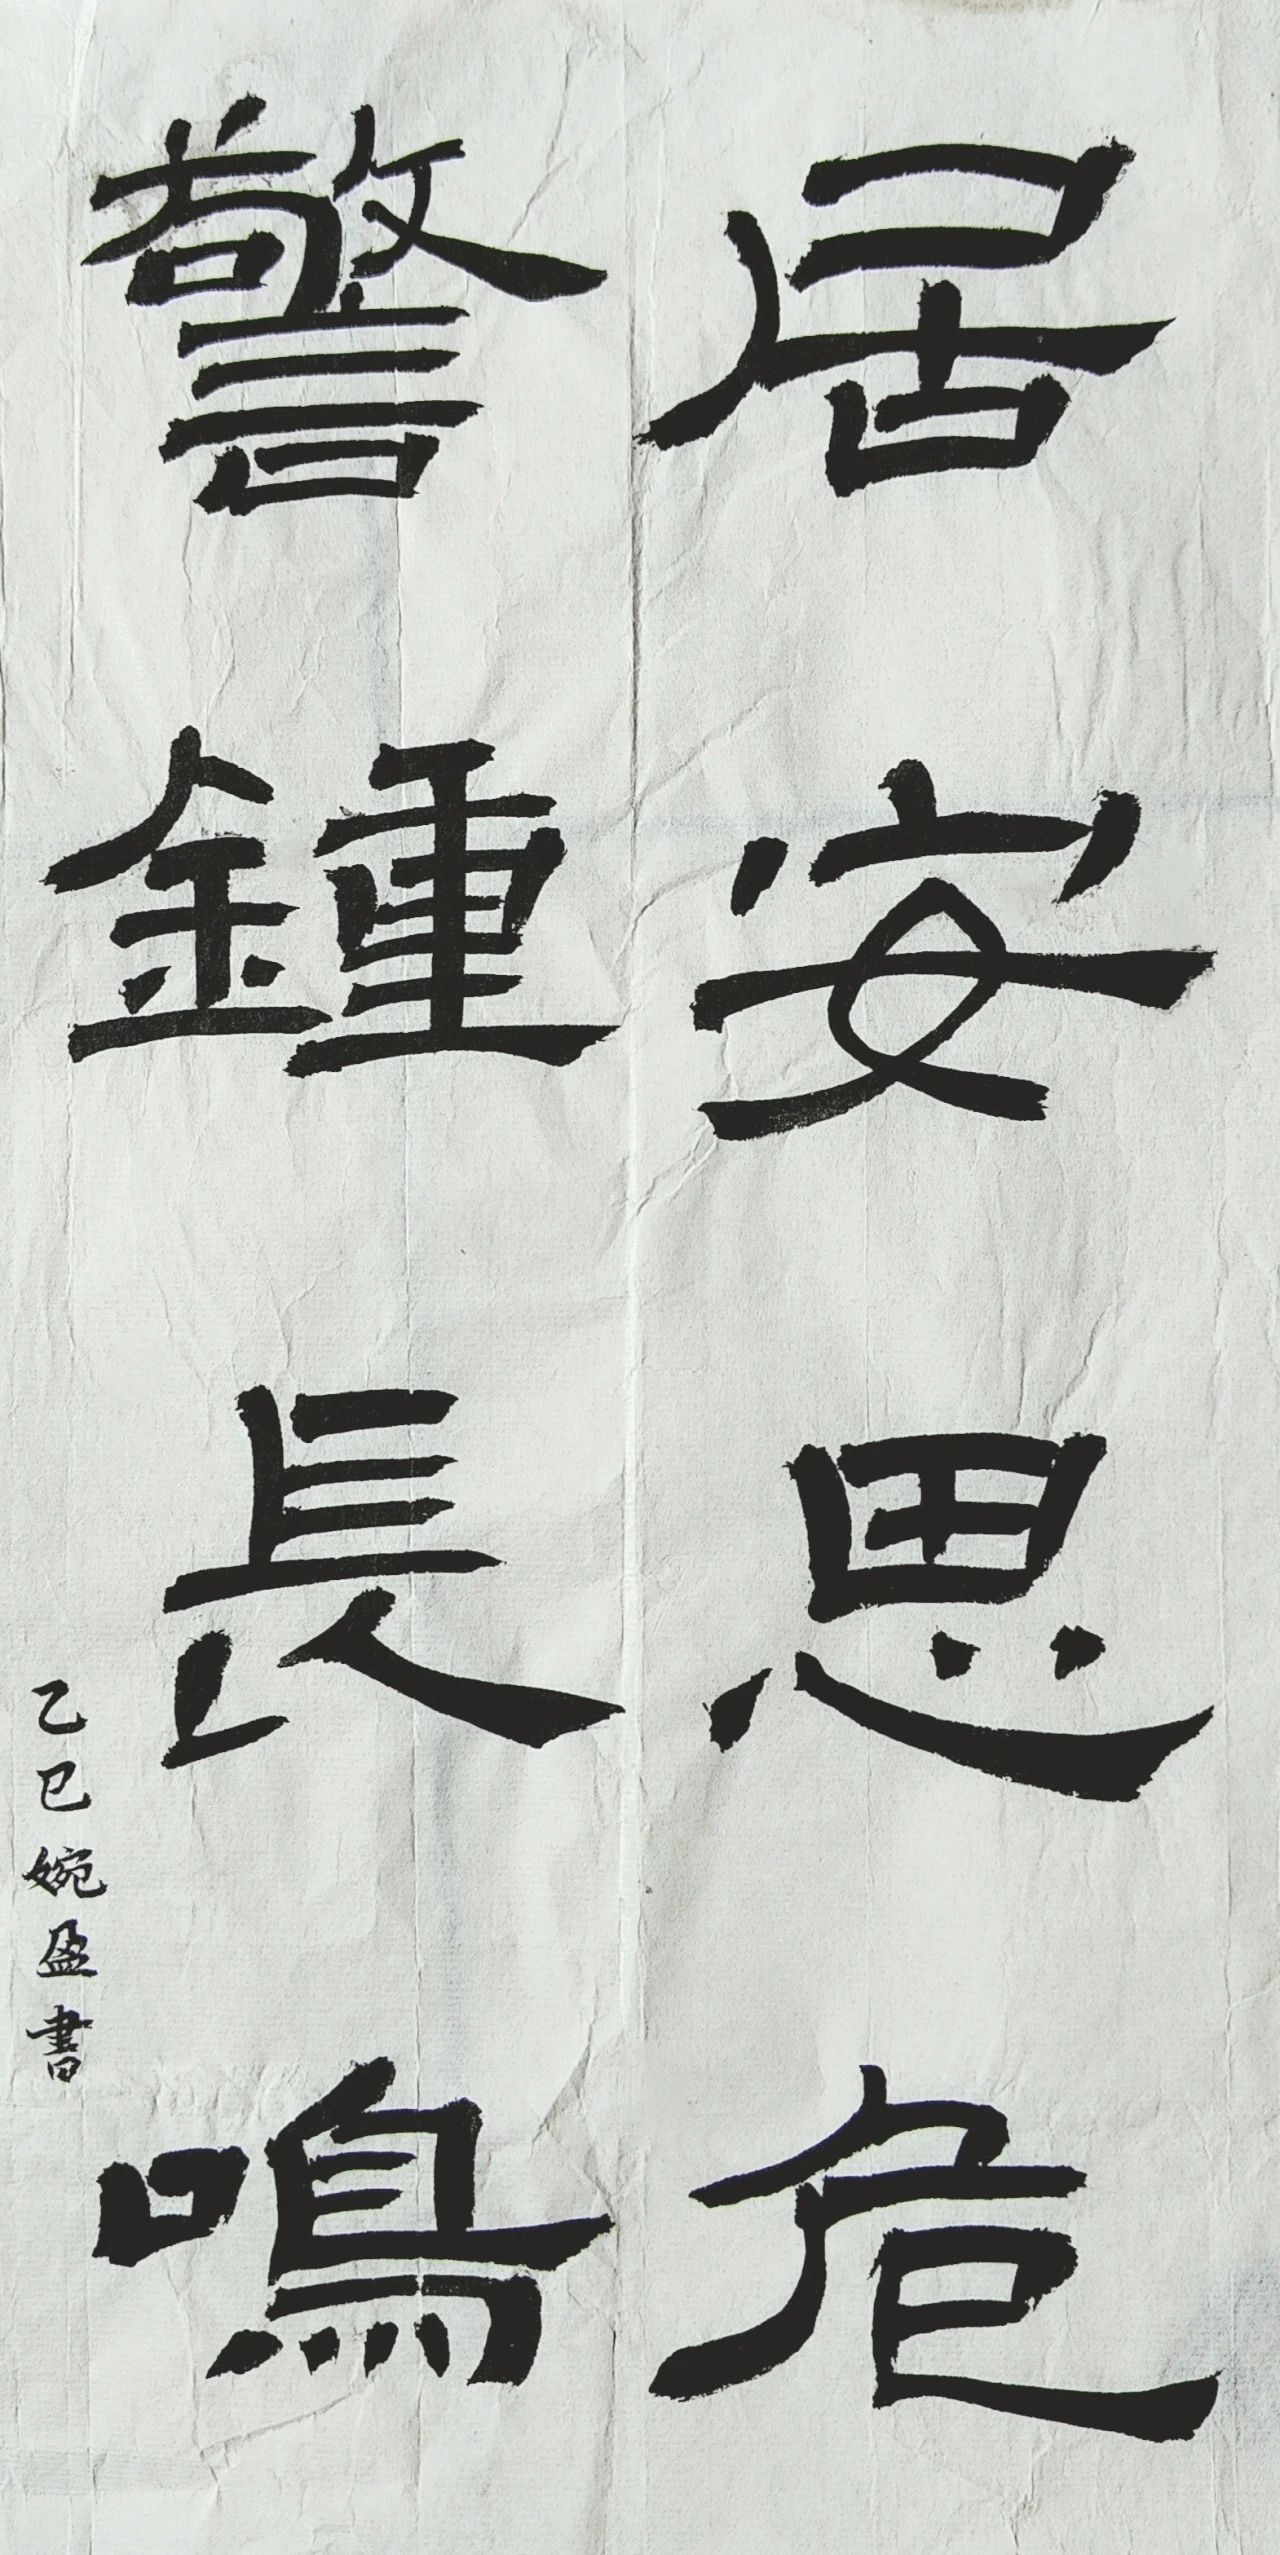 居安思危
警鍾長鳴
乙巳婉盈書